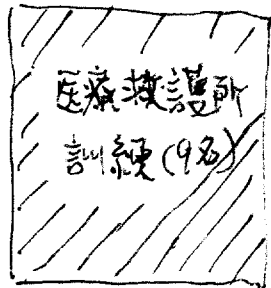 医療救護所
訓練(9名)